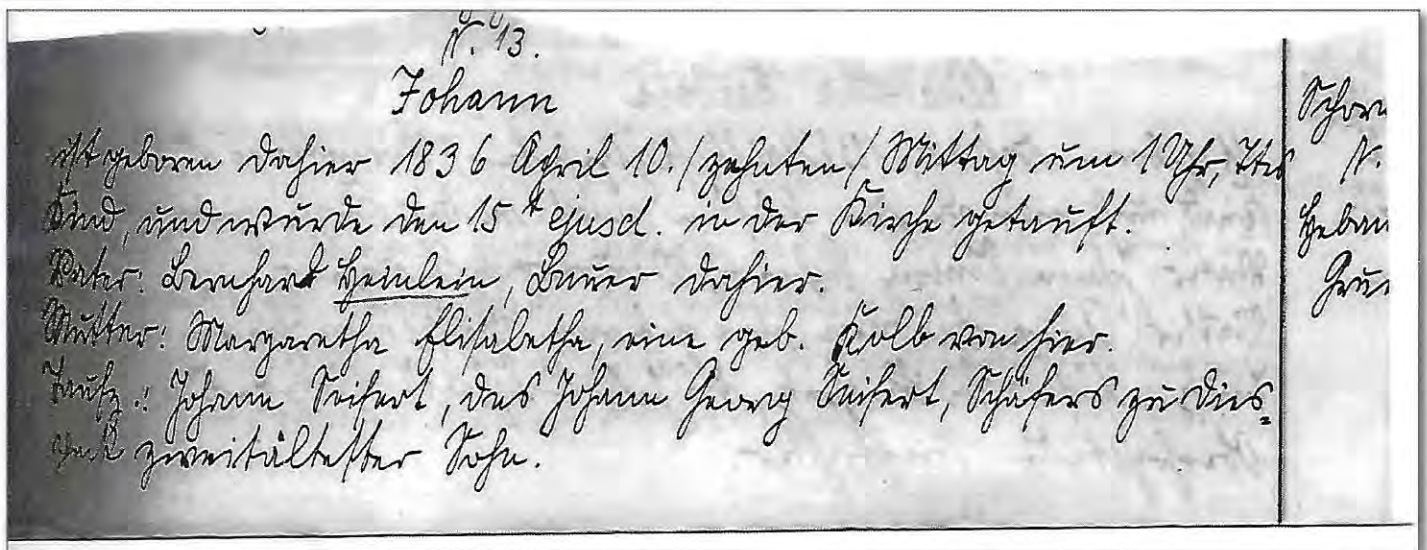 N. 13.
Johann
ist geboren dahier 1836 April 10. /zehnten/ Mittag um 1 Uhr, 7tes
Kind, und wurde den 15t ejusd. in der Kirche getauft.
Vater: Bernhard Heinlein, Bauer dahier.
Mutter: Margaretha Elisabetha, eine geb. Kolb von hier.
Taufz.: Johann Seifert, des Johann Georg Seifert, Schäfers zu Dies=
peck zweitältester Sohn.
Schorn
N.
Hebam